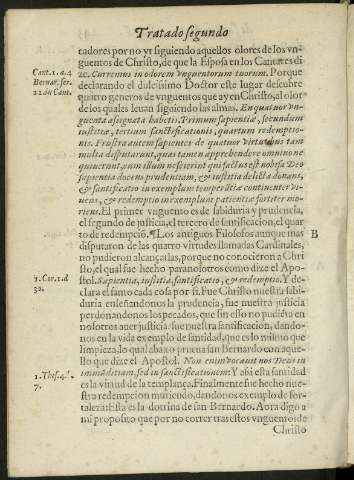 Tratado segundo
cadores por no yr siguiendo aquellos olores de los vn-
guentos de Christo, de que la Esposa en los Cantares di
Cant. 1. a. 4
ze. Curremus in odorem vnguentorum tuorum. Porque
Bernar. ser.
declarando el dulcissimo Doctor este lugar descubre
22. in Cant.
quatro generos de vnguentos que ay en Christo, al olor
de los quales leuan siguiendo las almas. En quatuor vn-
guenta assignata habetis. Primum sapientiæ, secundum
iustitiæ, tertium sanctificationis, quartum redemptio-
nis. Frustra autem sapientes de quatuor virtutibus tam
multa disputarunt, quas tamen apprehendere omnino ne
quiuerunt, cum illum nescirent qui factus est nobis a Deo
sapientia docens prudentiam, & iustitia delicta donans,
& santificatio in exemplum temperãtiæ continenter vi-
uens, & redemptio in exemplum patientiæ fortiter mo-
riens. El primer vnguento es de sabiduria y prudencia,
el segundo de justicia, el tercero de santificacion, el quar
to de redempciõ. ¶ Los antiguos Filosofos aunque mas
B
disputaron de las quatro virtudes llamadas Cardinales,
no pudieron alcançarlas, porque no conocieron a Chri
sto, el qual fue hecho para nosotros como dize el Apo-
1. Cor. 1. d
stol. Sapientia, iustitia, santificatio, & redemptio. Y de-
30.
clara el santo cada cosa por si. Fue Christo nuestra sabi-
duria enseñandonos la prudencia, fue nuestra justicia
perdonandonos los pecados, que sin esso no pudiera en
nosotros auer justicia: fue nuestra santificacion, dando-
nos en la vida exemplo de santidad, que es lo mismo que
limpieza, lo qual abaxo prueua san Bernardo con aque-
llo que dize el Apostol. Non enim vocauit nos Deus in
1. Thes. 4.
immũditiam, sed in sanctificationem: Y assi esta santidad
7.
es la virtud de la templança. Finalmente fue hecho nue-
stra redempcion muriendo, dandonos exemplo de for-
taleza: esta es la dotrina de san Bernardo. Aora digo a
mi proposito que por no correr tras estos vnguentos de
Christo